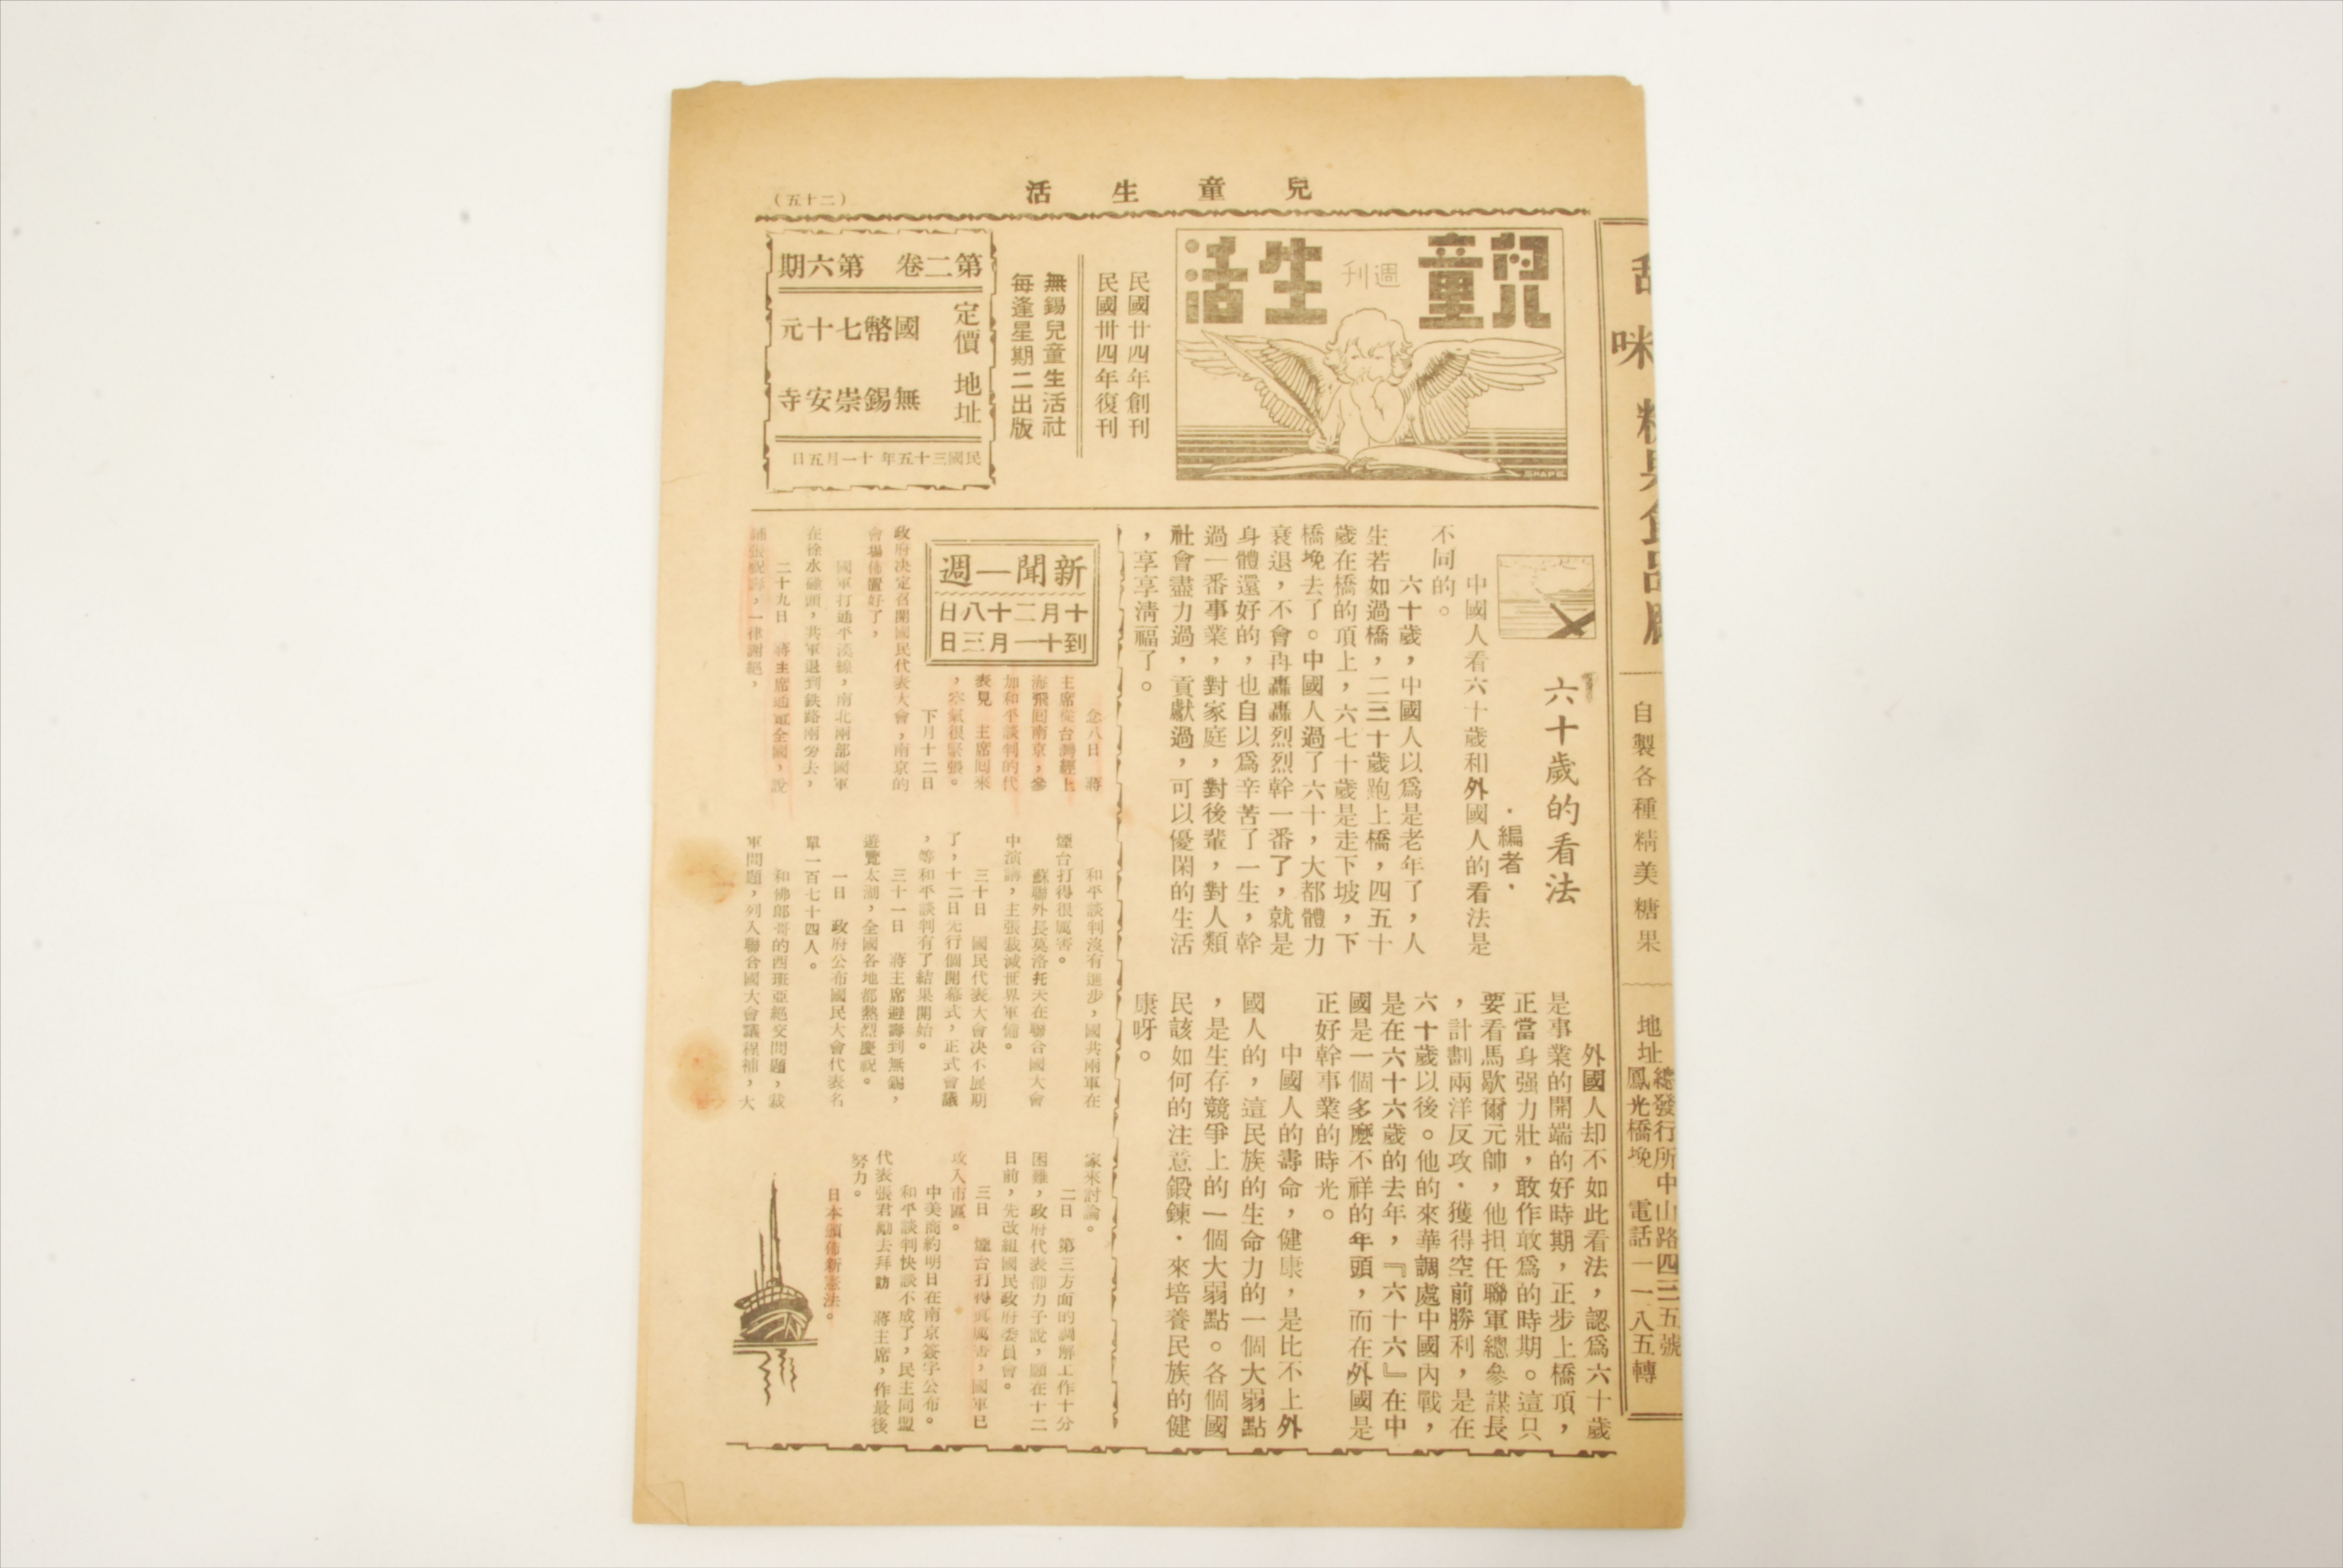 兒童生活
(二十五)
兒童生活
週刊
SHAPE
民國廿四年創刊
民國卅四年復刊
無錫兒童生活社
每逢星期二出版
第二卷 第六期
定價 國幣七十元
地址 無錫崇安寺
民國三十五年十一月五日
六十歲的看法
·編者·
中國人看六十歲和外國人的看法是
不同的。
六十歲，中國人以爲是老年了，人
生若如過橋，二三十歲跑上橋，四五十
歲在橋的頂上，六七十歲是走下坡，下
橋堍去了。中國人過了六十，大都體力
衰退，不會再轟轟烈烈幹一番了，就是
身體還好的，也自以爲辛苦了一生，幹
過一番事業，對家庭，對後輩，對人類
社會盡力過，貢獻過，可以優閑的生活
，享享淸福了。
外國人却不如此看法，認爲六十歲
是事業的開端的好時期，正步上橋頂，
正當身强力壯，敢作敢爲的時期。這只
要看馬歇爾元帥，他担任聯軍總參謀長
，計劃兩洋反攻·獲得空前勝利，是在
六十歲以後。他的來華調處中國內戰，
是在六十六歲的去年，『六十六』在中
國是一個多麽不祥的年頭，而在外國是
正好幹事業的時光。
中國人的壽命，健康，是比不上外
國人的，這民族的生命力的一個大弱點
，是生存競爭上的一個大弱點。各個國
民該如何的注意鍛鍊·來培養民族的健
康呀。
新聞一週
十月二十八日
到十一月三日
念八日 蔣
主席從台灣經上
海飛囘南京，參
加和平談判的代
表見 主席囘來
，空氣很緊張。
下月十二日
政府决定召開國民代表大會，南京的
會場佈置好了，
國軍打通平漢線，南北兩部國軍
在徐水碰頭，共軍退到鉄路兩旁去，
二十九日 蔣主席通電全國，說
舖張祝壽，一律謝絕，
和平談判沒有進步，國共兩軍在
煙台打得很厲害。
蘇聯外長莫洛托夫在聯合國大會
中演講，主張裁減世界軍備。
三十日 國民代表大會决不展期
了，十二日先行個開幕式，正式會議
，等和平談判有了結果開始。
三十一日 蔣主席避壽到無錫，
遊覽太湖，全國各地都熱烈慶祝。
一日 政府公布國民大會代表名
單一百七十四人。
和佛郎哥的西班亞絕交問題，裁
軍問題，列入聯合國大會議程補，大
家來討論。
二日 第三方面的調解工作十分
困難，政府代表邵力子說，願在十二
日前，先改組國民政府委員會。
三日 煙台打得眞厲害，國軍已
攻入市區。
中美商約明日在南京簽字公布。
和平談判快談不成了，民主同盟
代表張君勱去拜訪 蔣主席，作最後
努力。
日本頒佈新憲法。
咪
自製各種精美糖果
地址
總發行所中山路四三五號
鳳光橋堍 電話一一八五轉